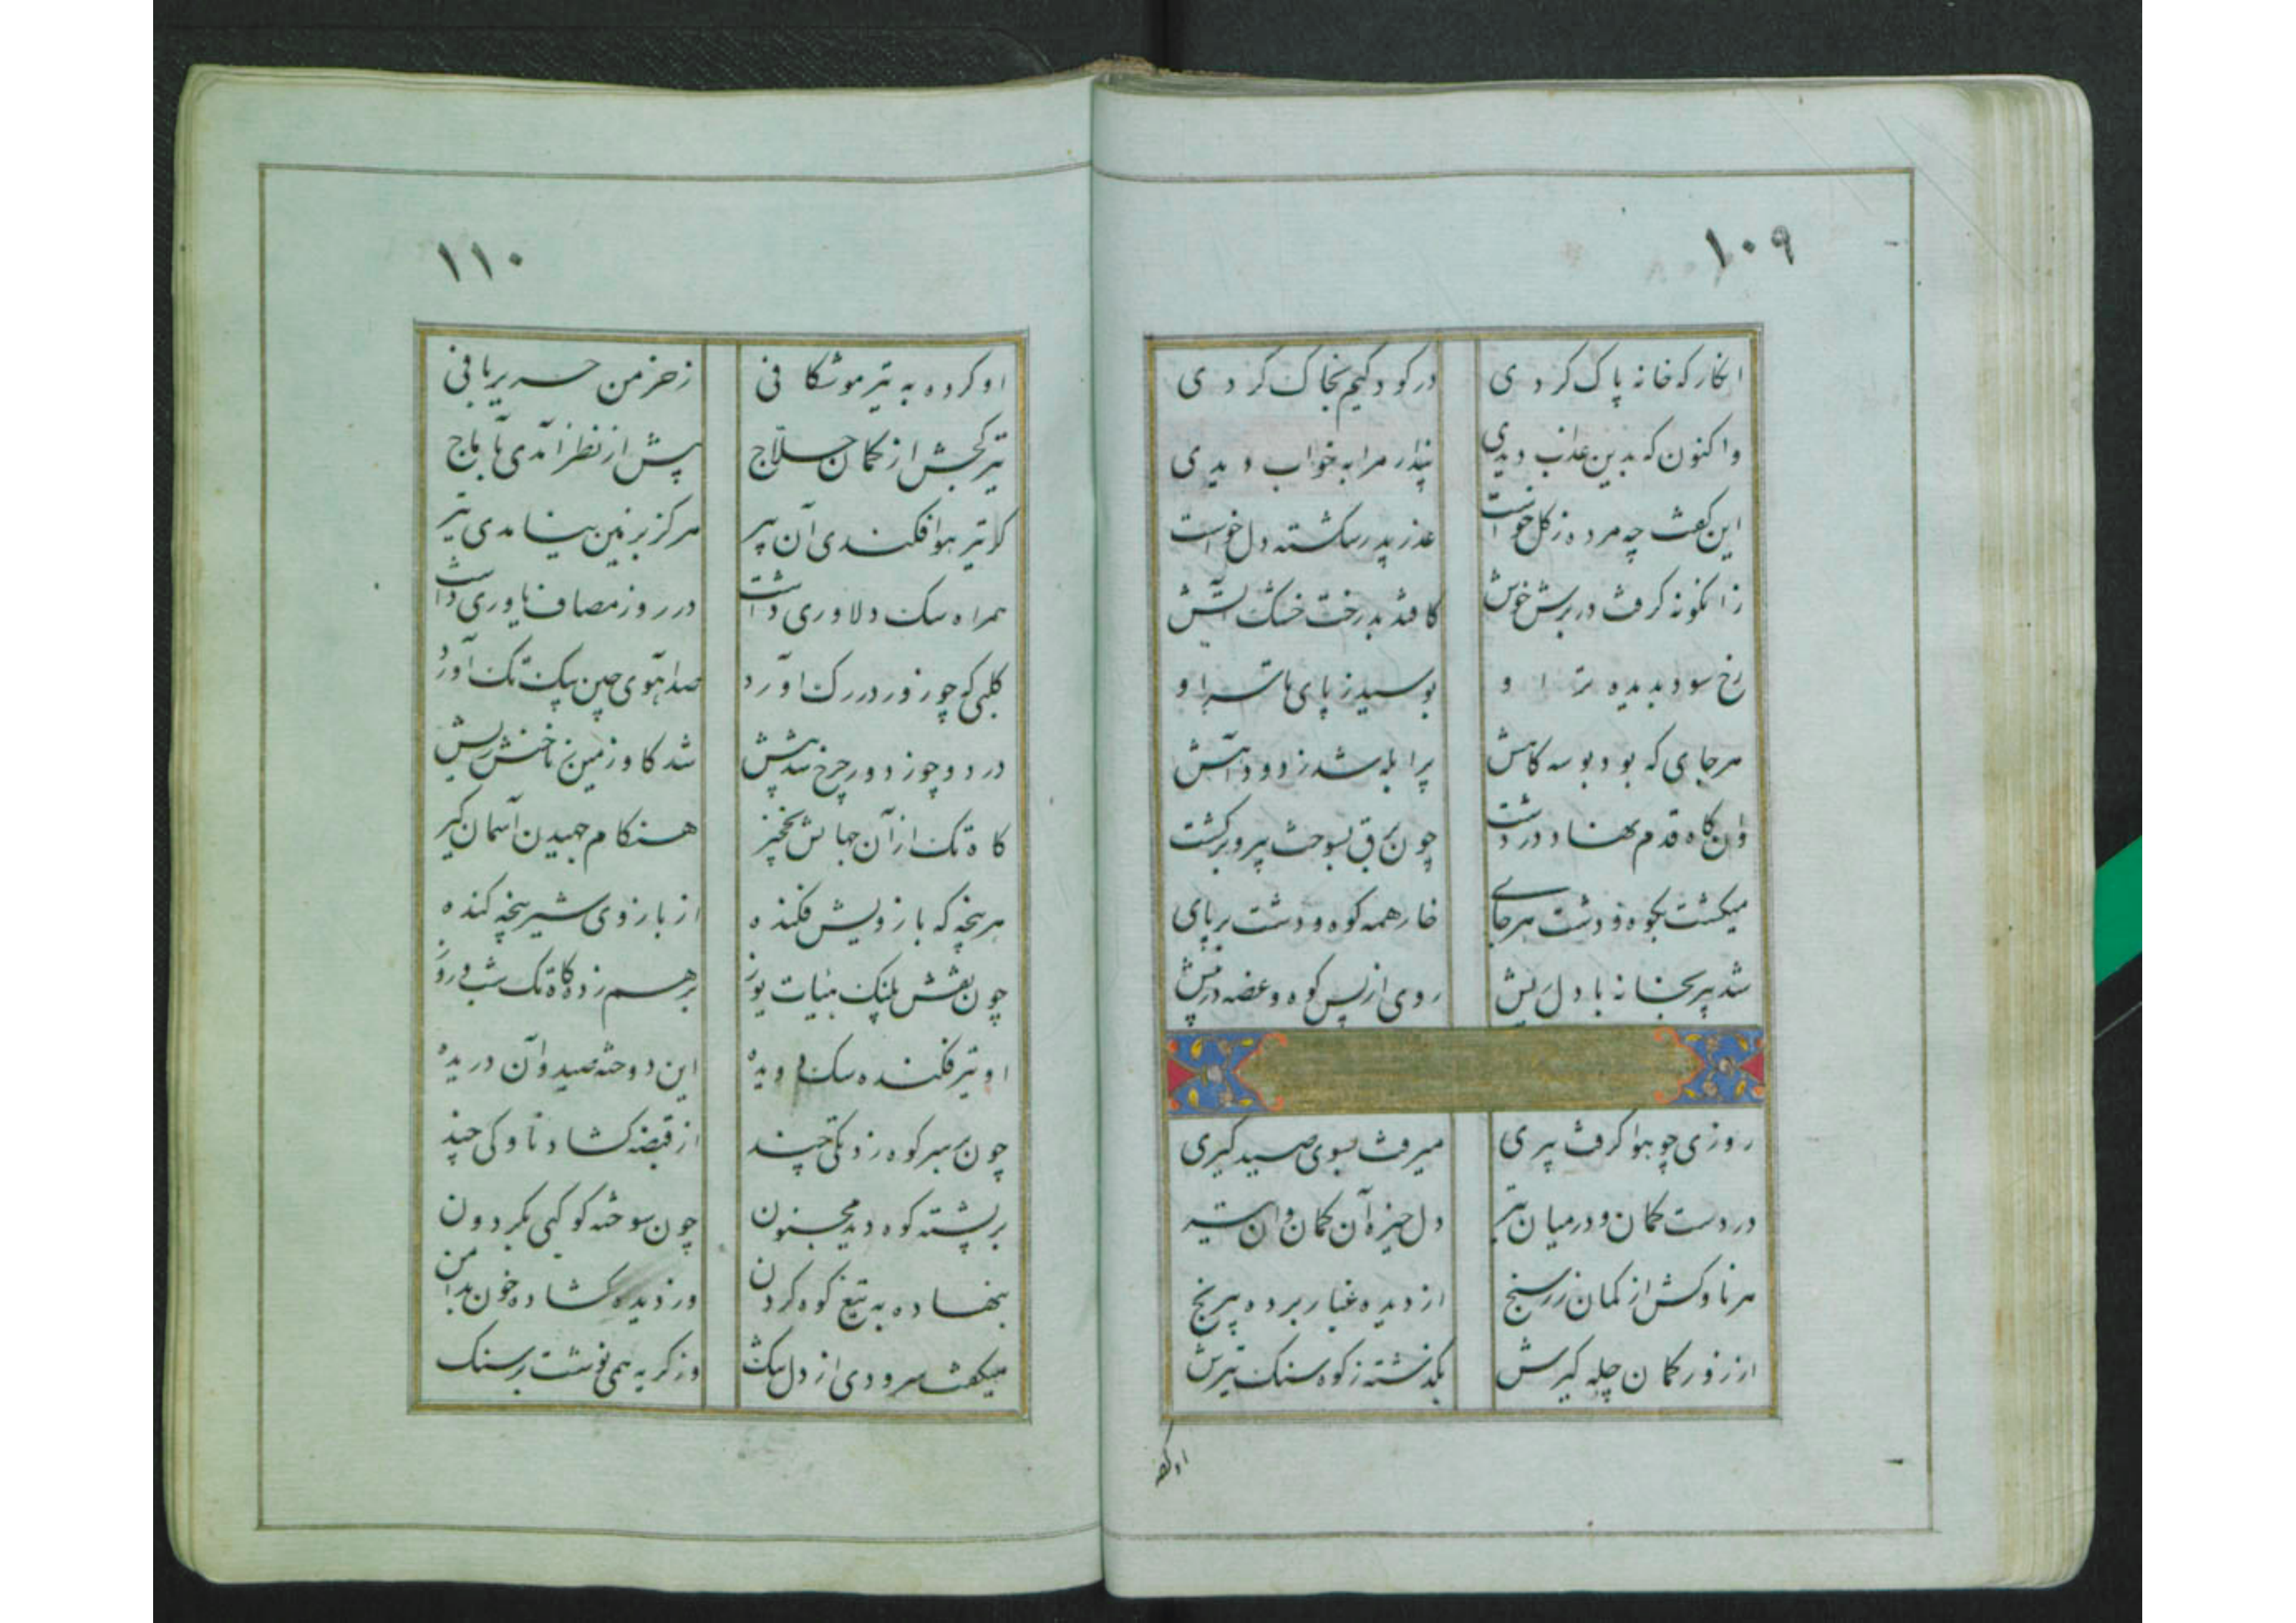 ۱۰۹
انکار که خانه پاک کردی در کودکیم بخاک کردی
واکنون که بدین عذاب دیدی پندار مرا به خواب دیدی
این کفت چه مرده ز کل خواست عذر پدر شکسته دل خواست
زانکونه کرفت در برش خوش کافتد بدرخت خشک آتش
رخ سود بدیده تر او بوسید ز پای تا سر او
هر جای که بود بوسه کاهش پر ابله شد ز دود آهش
وان کاه قدم نهاد در دشت چون برق بسوخت پیر و برکشت
میکشت بکوه و دشت هر جای خار همه کوه و دشت بر پای
شد پیر بخانه با دل ریش روی از پس کوه و غصه در پیش
روزی چو هوا کرفت پیری میرفت بسوی صید کیری
در دست کمان و در میان تیر دل خیره آن کمان و ان تیر
هر ناوکش از کمان زر سنج از دیده غبار برده بی رنج
از زور کمان چله کیرش بکذشته ز کوه سنک تیرش
او کرده
۱۱۰
او کرده به تیر موشکافی ز خرمن حریر بافی
تیر کجش از کمان حلاج پیش از نظر آمدی به آماج
کر تیر هوا فکندی آن پیر هرکز بزمین نیامدی تیر
همراه سک دلاوری داشت در روز مصاف یاوری داشت
کلبی که چو زور در رک آورد صد آهوی چین بیک تک آورد
در دو چو ز دور چرخ شد پیش شد کاو زمین ز ناخنش ریش
کاه تک از آن جهان هنکام جهیدن آسمان کیر
هر پنجه که بازویش فکنده از بازوی شیر پنجه کنده
چون نقش پلنک یوز برهم زده کاه تک شب و روز
او تیر فکنده سک دویده این دوخته صید و آن دریده
چون بر سر کوه زد تکی چند از قبضه کشاد ناوکی چند
بر پشته کوه دید مجنون چون سوخته کوکبی بکردون
بنهاده به تیغ کوه کردن وز دیده کشاده خون بدامن
میکفت سرودی از دل تنک وز کریه همی نوشت بر سنک